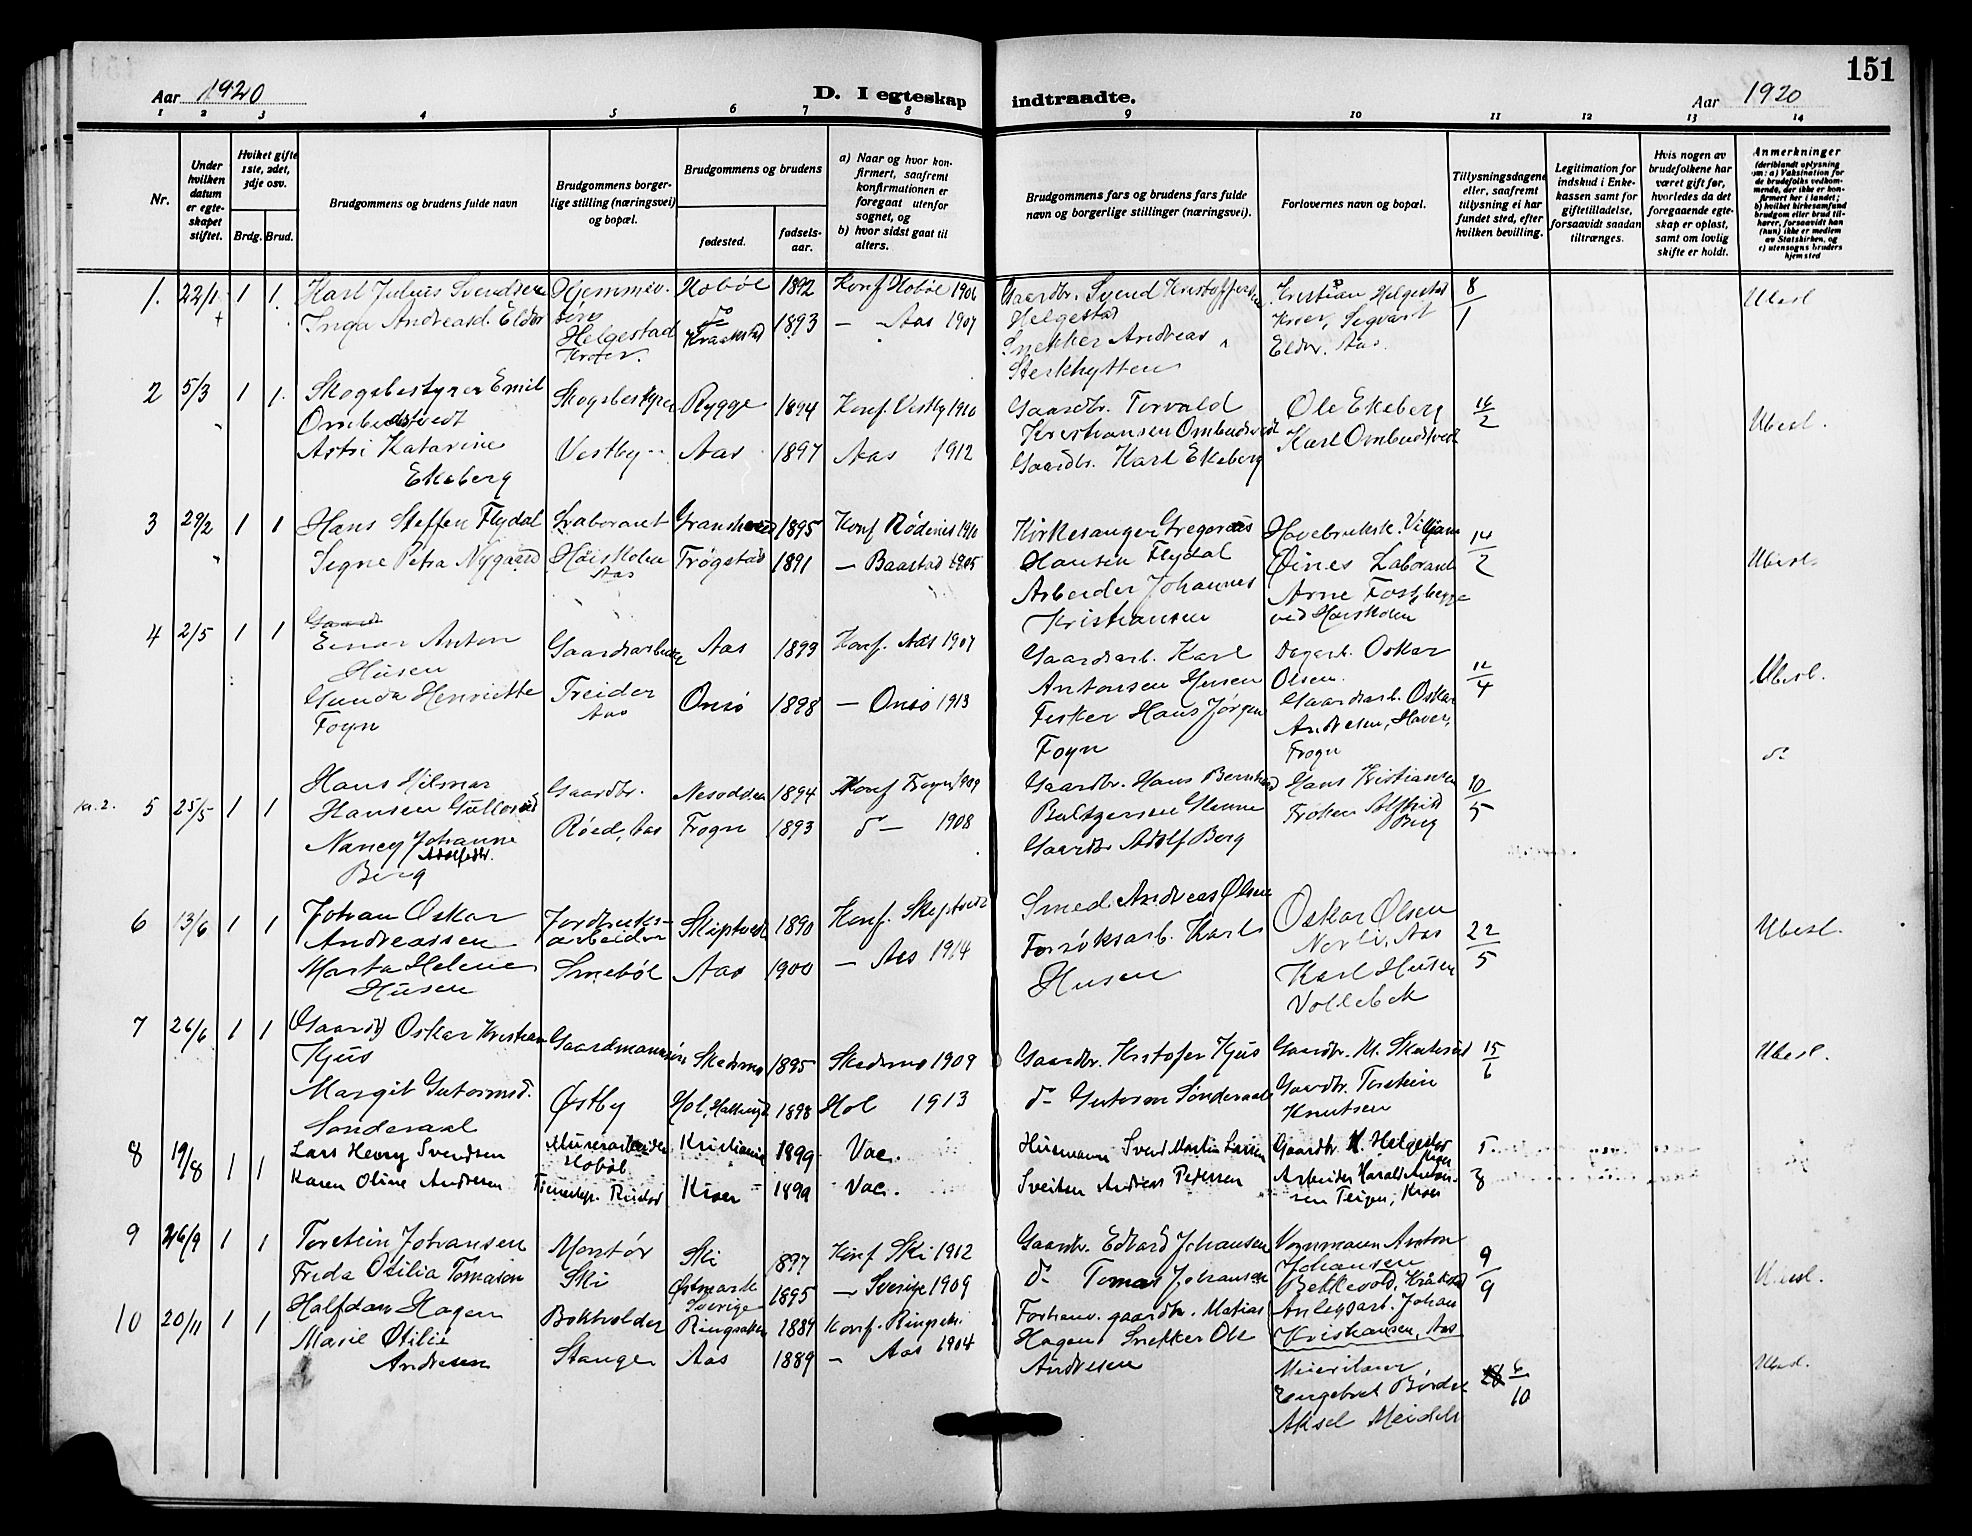 151
Aar 1920
D. I egteskap indtraadte.
Aar 1920
1 2 3 4 5 6 7 8 9 10 11 12 13 14
Nr.
Under hvilken datum er egteskapet stiftet.
Hviket gifte 1ste, 2det, 3dje osv.
Brdg. Brud.
Brudgommens og brudens fulde navn
Brudgommens borgerlige stilling (næringsvei) og bopæl.
Brudgommens og brudens
fødested.
fødselsaar.
a) Naar og hvor konfirmert, saafremt konfirmationen er foregaat utenfor sognet, og
b) hvor sidst gaat til alters.
Brudgommens fars og brudens fars fulde navn og borgerlige stillinger (næringsvei).
Forlovernes navn og bopæl.
Tillysningsdagene eller, saafremt tillysning ei har fundet sted, efter hvilken bevilling.
Legitimation for indskud i Enkekassen samt for giftetilladelse, forsaavidt saadan tiltrænges.
Hvis nogen av brudefolkene har været gift før, hvorledes da det foregaaende egteskap er opløst, samt om lovlig skifte er holdt.
Anmerkninger
(deriblandt oplysning om: a) Vaksination for de brudefolks vedkommende, der ikke er konfirmert her i landet; b) hvilket kirkesamfund brudgom eller brud tilhører, forsaavidt han (hun) ikke er medlem av Statskirken, og c) utensogns bruders hjemsted
1. 22/1 1 1. Karl Julius Svendsen Hjemmev. Hobøl 1892 Konf. Hobøl 1906 Gaardbr. Svend Kristoffersen Kristian Helgestad 8/1 Ubesl
Inga Andreasd. Eldor Helgestad Kroer. do Kraakstad 1893 – Aas 1907 Helgestad Kroer, Sigvart
Snekker Andreas Eldor. Aas.
Sterkhytten
2 5/3 1 1. Skogsbestyrer Emil Skogsbestyrer Rygge 1894 Konf. Vestby 1910 Gaardbr. Torvald Ole Ekeberg 16/2 Ubesl.
Ombudstvedt Kristiansen Ombudstvedt Karl Ombudstvedt
Astri Katarine Vestby Aas 1897 Aas 1912 Gaardbr. Karl Ekeberg
Ekeberg
3 29/2 1 1 Hans Steffen Flydal Laborant 1895 Konf. Rødenes 1910 Kirkesanger Gregorius Havebruksk. 14/2 Ubesl.
Signe Petra Nygaard Høiskolen Aas Trøgstad 1891 – Baastad 1905 Hansen Flydal Øines Laborant
Arbeider Johannes Arne
Kristiansen ved Høiskolen
4 2/5 1 1 Einar Anton Gaardsarbeider Aas 1899 Konf. Aas 1907 Gaardsarb. Karl Dagarb. Oskar 11/4 Ubesl.
Husen Antonsen Husen Olsen.
Gunda Henriette Treider Aas Onsø 1898 – Onsø 1913 Fisker Hans Jørgen Gaardsarb. Oskar
Fogn Fogn Andresen, Haver, Frogn
kr. 2. 5 25/5 1 1 Hans Hilmar Gaardbr. Nesodden 1894 Konf. Frogn 1909 Gaardbr. Hans Bernhard Hans Kristiansen 10/5 do
Hansen Gullerud Baltzersen Glenne Frøken Alfhild Berg
Nancy Johanne Adolfsdtr. Røed, Aas Frogn 1893 do – 1908 Gaardbr. Adolf Berg
Berg
6 13/6 1 1 Johan Oskar Jordbruksarbeider Skiptvedt 1890 Konf. Skiptvedt Smed. Andreas Olsen Oskar Olsen 22/5 Ubesl.
Andreassen Nerli, Aas
Marta Helene Smebøl Aas 1900 – Aas 1914 Forsøksarb. Karl Karl Husen
Husen Husen Vollebek
7 26/6 1 1 Gaardb. Oskar Kristian Gaardmannsøn Skedsmo 1895 Skedsmo 1909 Gaardbr. Kristofer Kjus Gaardbr. M. 15/6 Ubesl.
Kjus
Margit Gutormsd. Østby Hol, Hallingd. 1898 Hol 1913 do Gutorm Sønderaal Gaardbr. Torstein
Sønderaal Knutsen
8 19/8 1 1 Lars Henry Svendsen Murerarbeider Hobøl Kristiania 1899 Vac. Husmann Svend Martin Larsen Gaardbr. K. Helgestad Kroer 1/8
Karen Oline Andresen Kroer 1899 Vac. Andreas Pedersen Arbeider Harald Andresen Teigen, Kroer
9 26/9 1 1 Torstein Johansen Montør Ski 1897 Konf. Ski 1912 Gaardbr. Edvard Johansen Vognmann Anton 9/9 Ubesl.
Johansen
Frida Otilia Tomasson Ski Østmark Sverige 1895 – Sverige 1909 do Tomas Johansen Bekkevold, Kråkstad
10 20/11 1 1 Halfdan Hagen Bokholder Ringsaker 1889 Konf. Ringsak. Forhenv. gaardbr. Matias Anlegsarb. Johan
Marie Otilie Hagen Snekker Ole Kristiansen, Aas
Andresen Stange Aas 1889 – Aas 1904 Andresen Meierilærer 6/10 Ubesl.
Engebret Børdal
Aksel Meidell